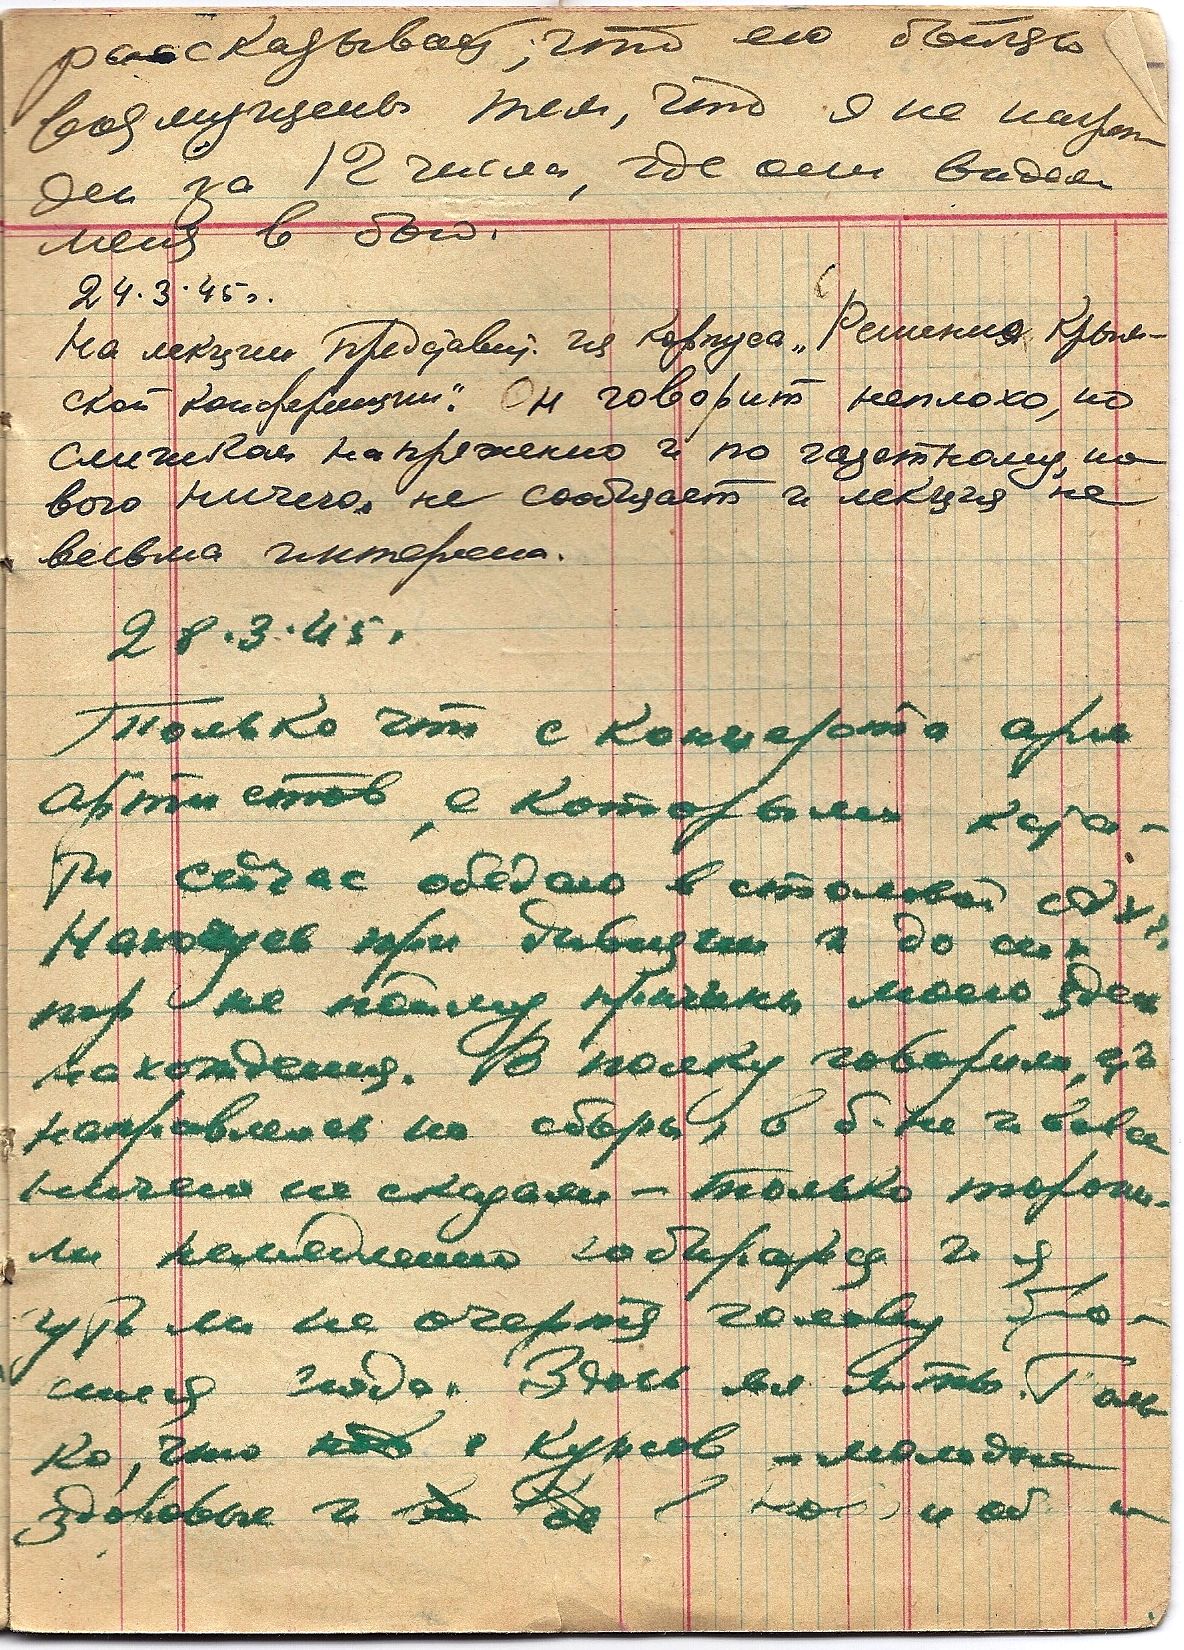 рассказывает, что его бойцы
возмущены тем, что я не награж
ден за 12 числа, где они видели
меня в бою.
24.3.45г.
На лекции представит. из корпуса „Решения Крым-
ской конференции". Он говорит неплохо, но
слишком напряженно и по газетному, но
вого ничего не сообщает и лекция не
весьма интересна.
28.3.45.
Только что с концерта арм
артистов, с которыми кста-
ти сейчас обедаю в столовой АХЧ.
Нахожусь при дивизии и до сих
пор не пойму причины моего здесь
нахождения. В полку говорили, что
направляюсь на сборы, в б-не и вовсе
ничего не сказали – только торопи-
ли немедленно собираться и я
чуть ли не очертя голову
сюда. Здесь Толь
ко, что с курсов – молодые
здоровые и